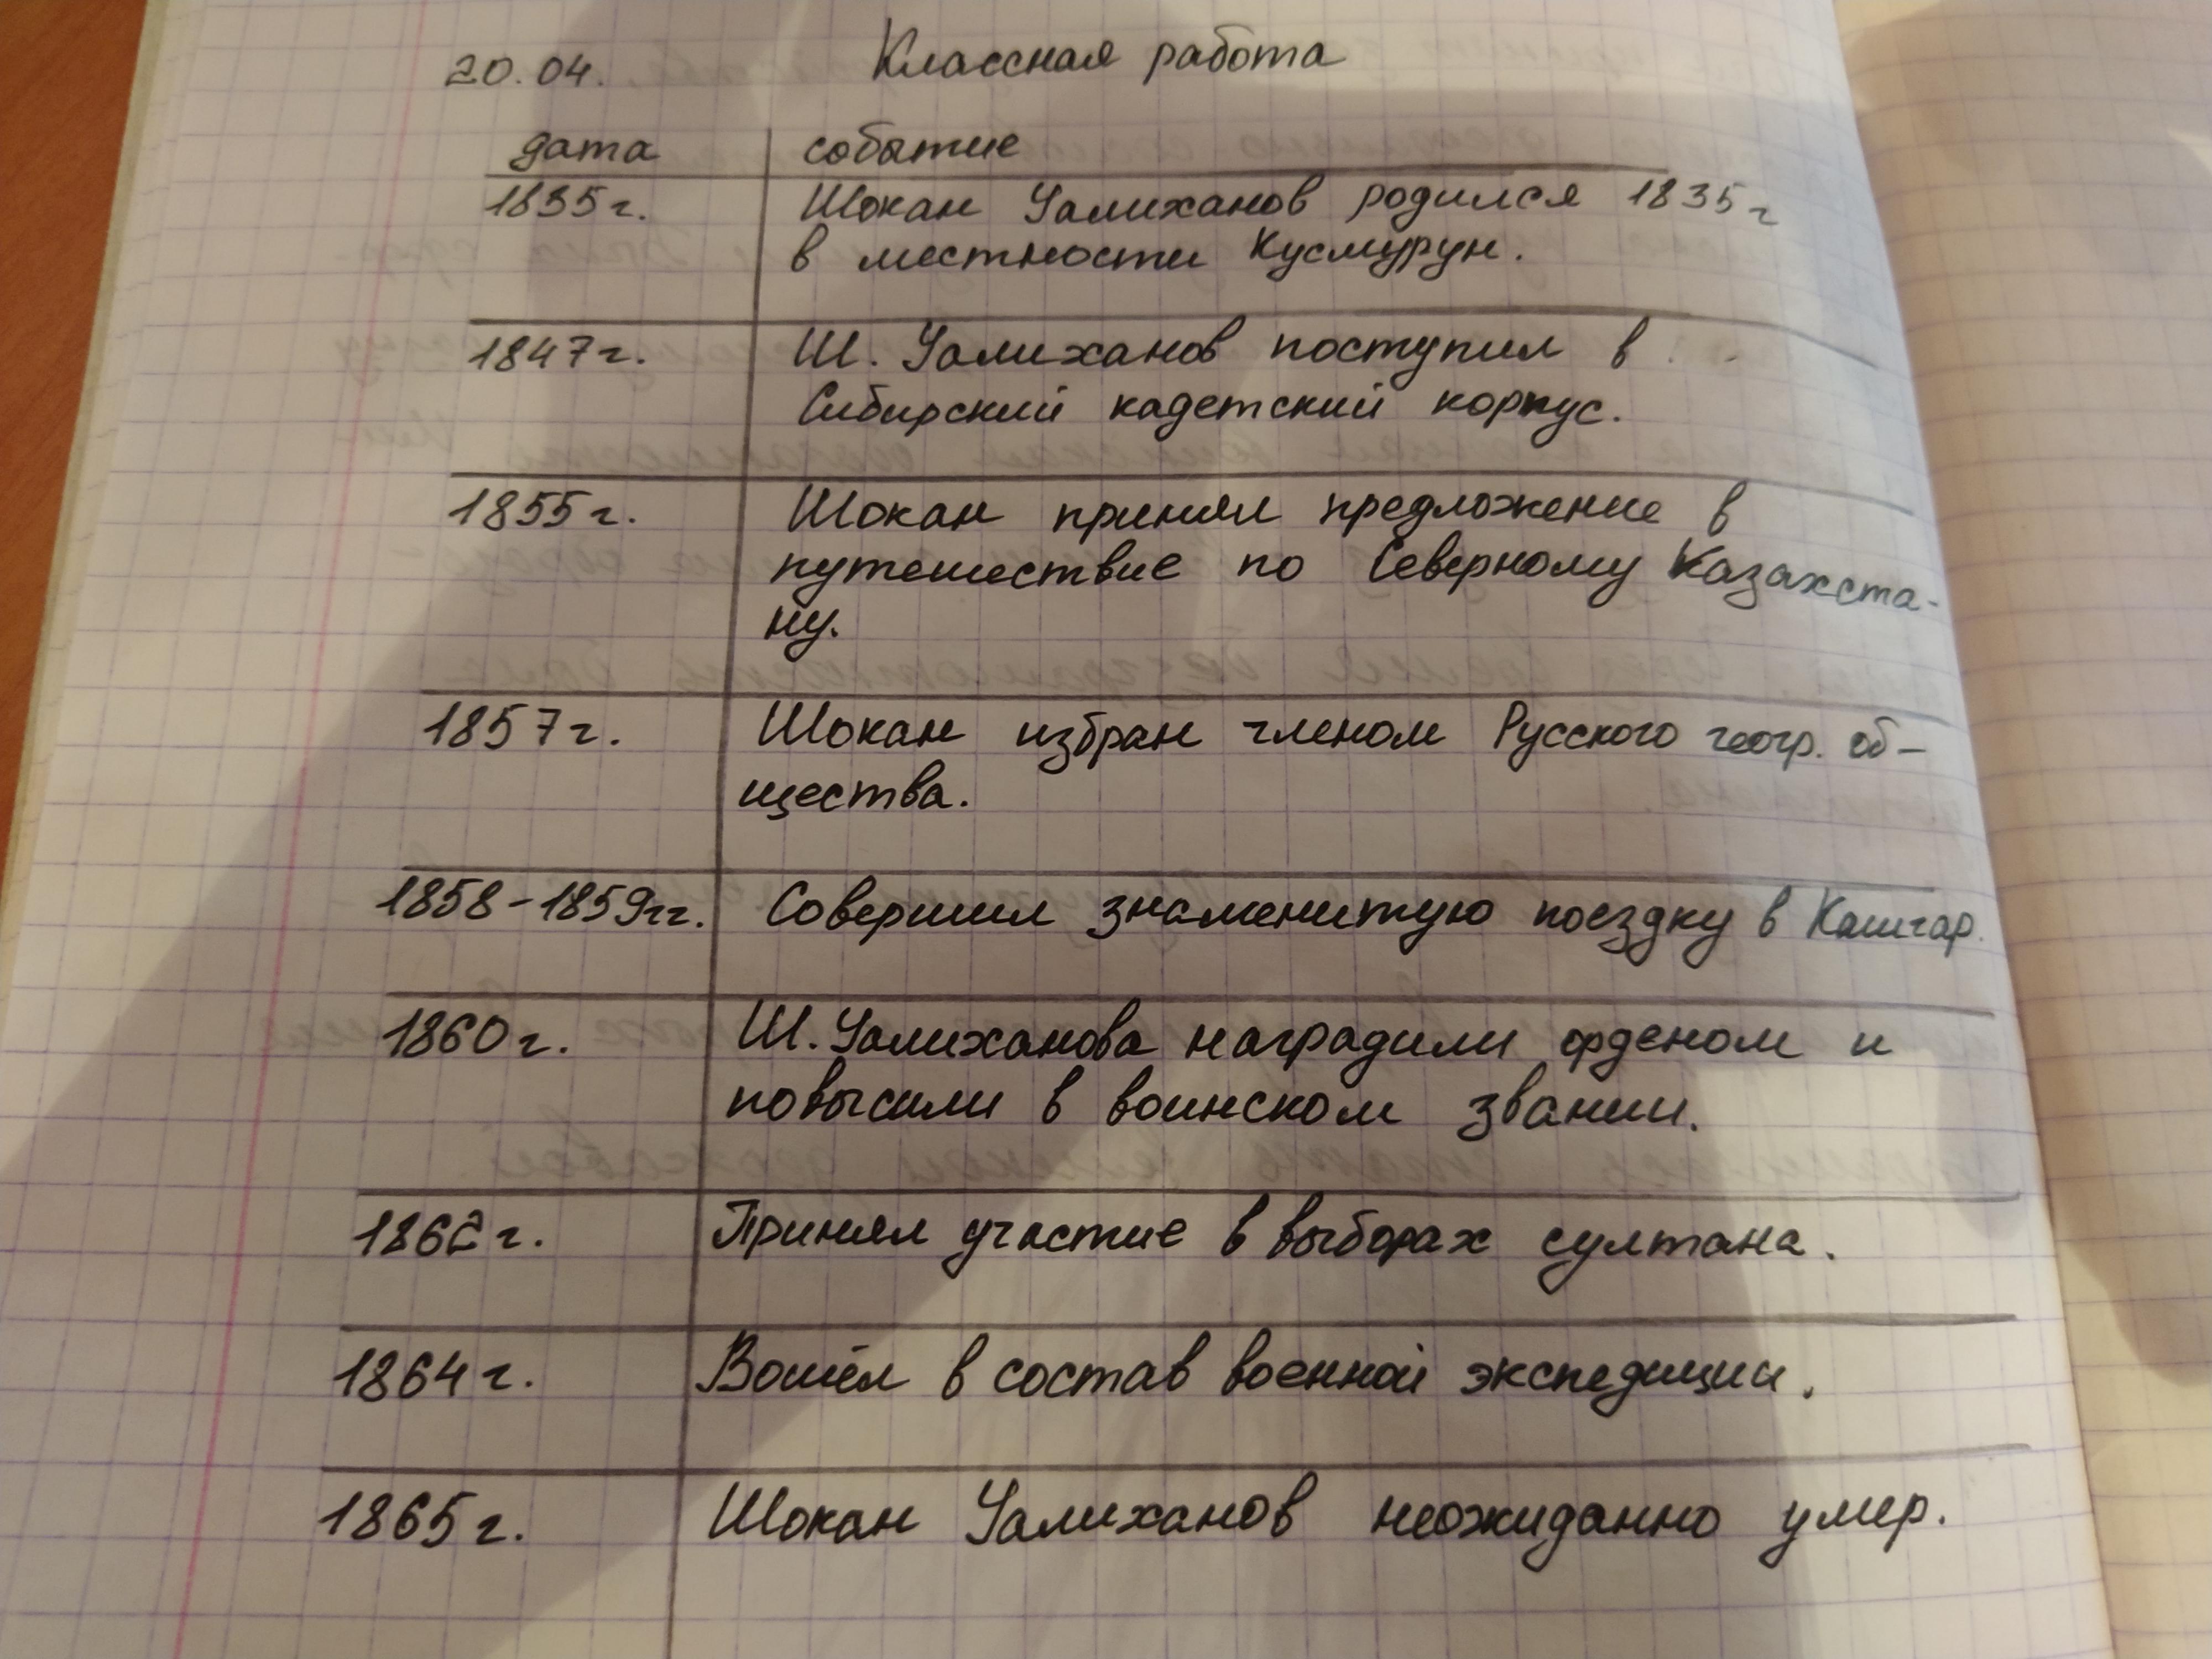 20.04. Классная работа
дата событие
1835г. Шокан Уалиханов родился 1835г
в местности Кусмурун.
1847г. Ш. Уалиханов поступил в
Сибирский кадетский корпус.
1855г. Шокан принял предложение в
путешествие по Северному Казахста-
ну.
1857г. Шокан избран членом Русского геогр. об-
щества.
1858-1859гг. Совершил знаменитую поездку в Кашгар.
1860г. Ш. Уалиханова наградили орденом и
повысили в воинском звании.
1862г. Принял участие в выборах султана.
1864г. Вошёл в состав военной экспедиции.
1865г. Шокан Уалиханов неожиданно умер.